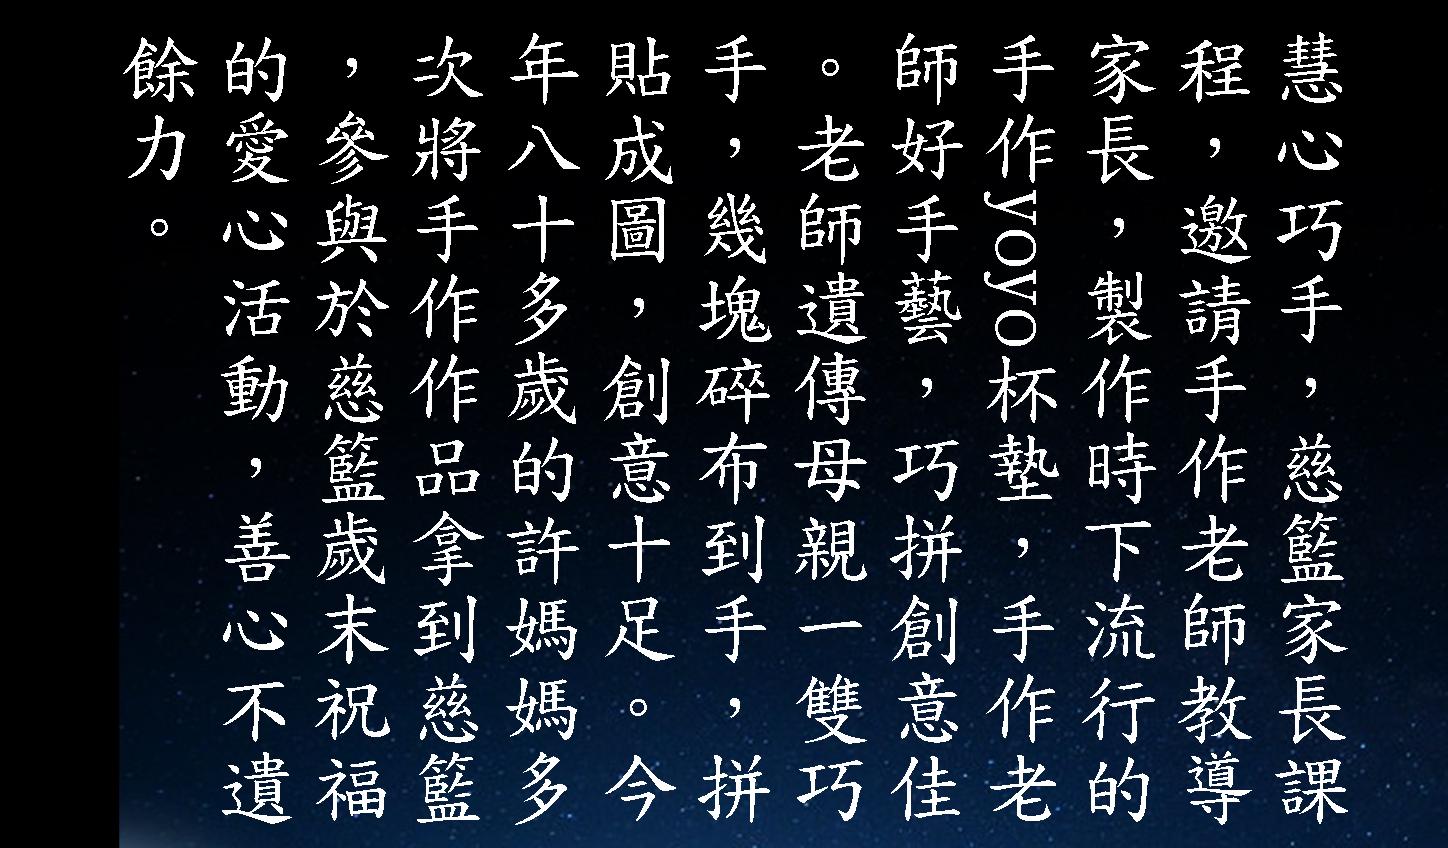 慧心巧手，慈籃家長課
程，邀請手作老師教導
家長，製作時下流行的
手作yoyo杯墊，手作老
師好手藝，巧拼創意佳
。老師遺傳母親一雙巧
手，幾塊碎布到手，拼
貼成圖，創意十足。今
年八十多歲的許媽媽多
次將手作作品拿到慈籃
，參與於慈籃歲末祝福
的愛心活動，善心不遺
餘力。